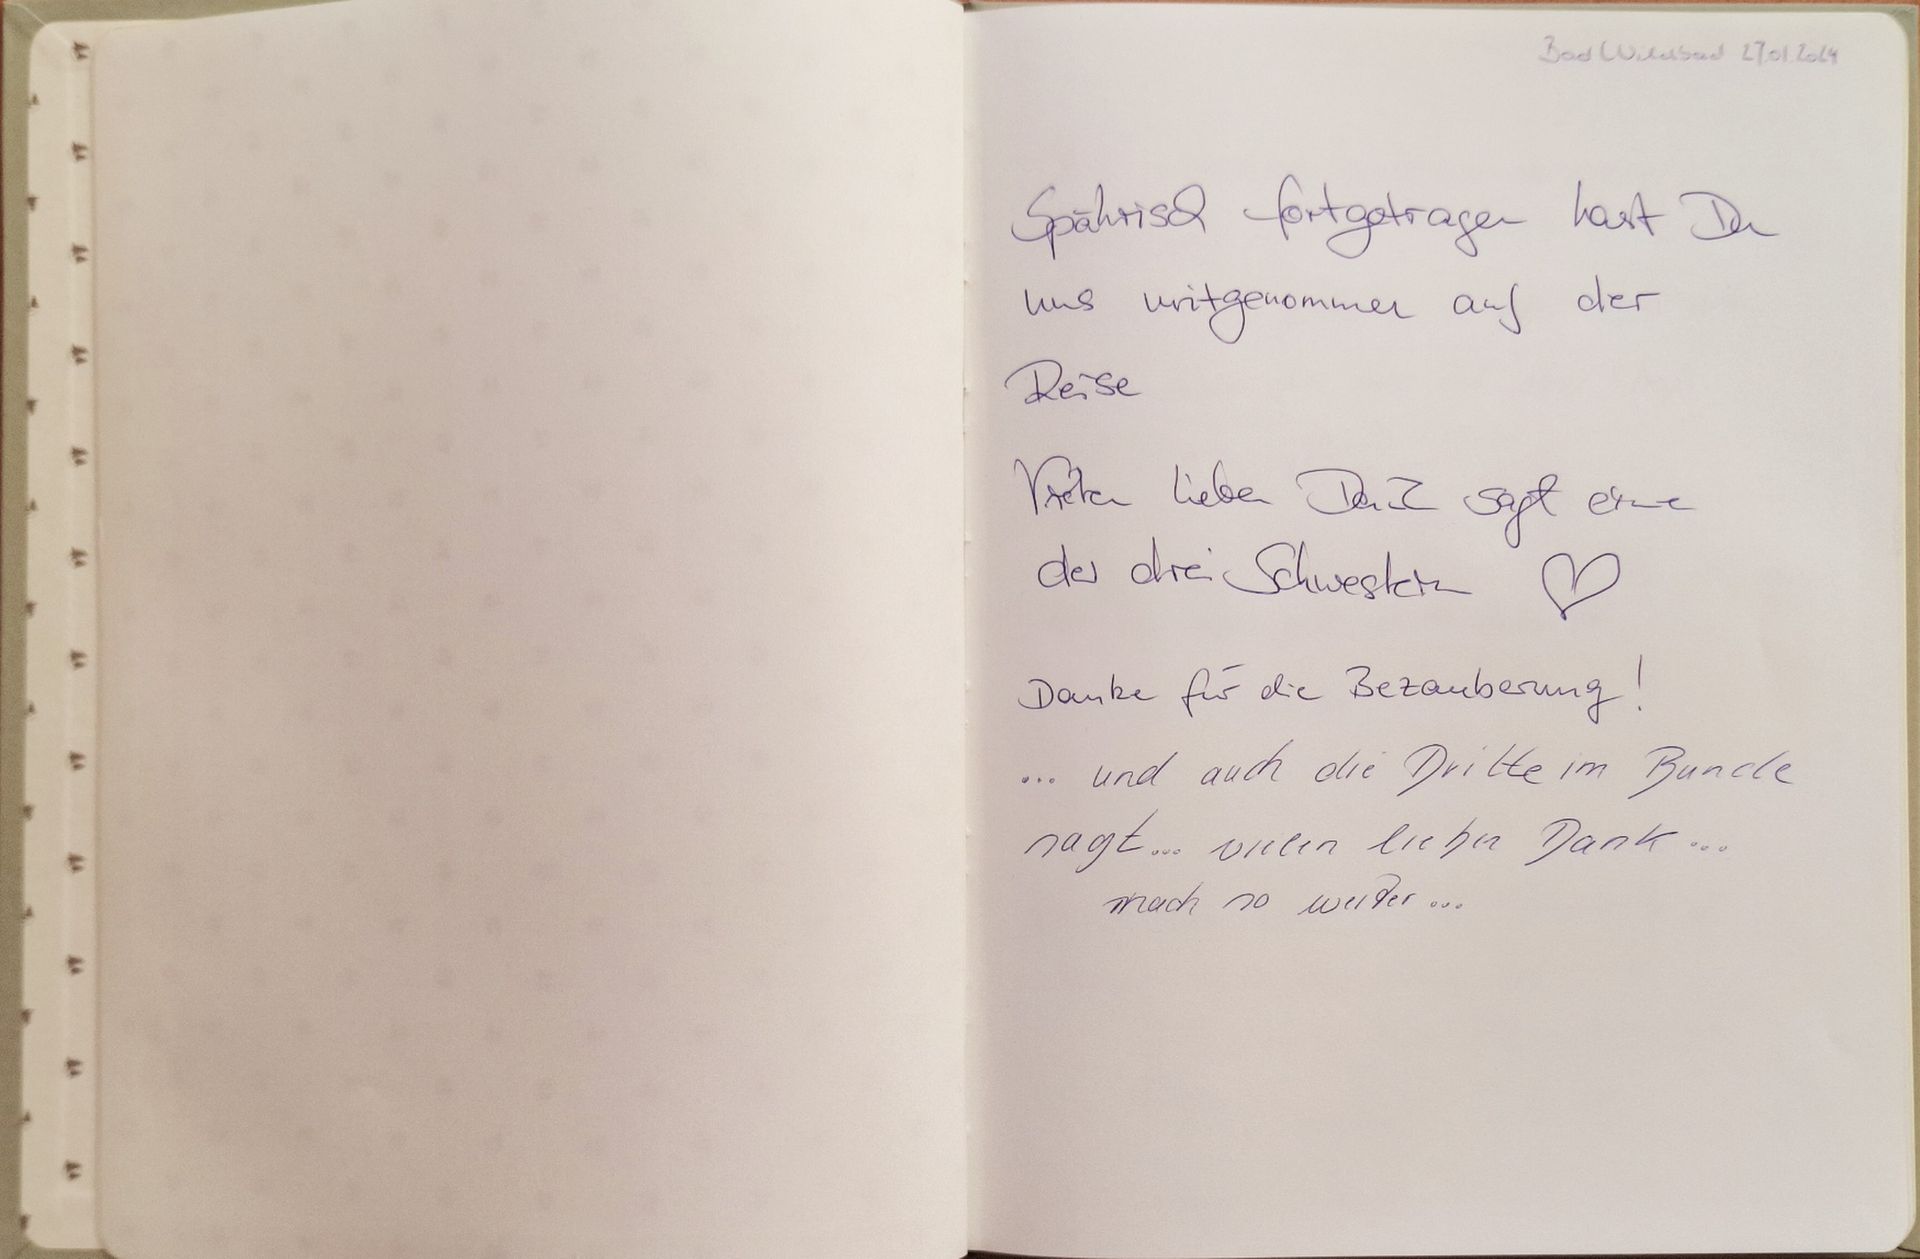 Bad Wildbad 27.01.2024
Spährisch fortgetragen hast Du
uns mitgenommen auf der
Reise
Vielen lieben Dank sagt eine
der drei Schwestern
Danke für die Bezauberung!
... und auch die Dritte im Bunde
sagt... vielen lieben Dank...
mach so weiter...